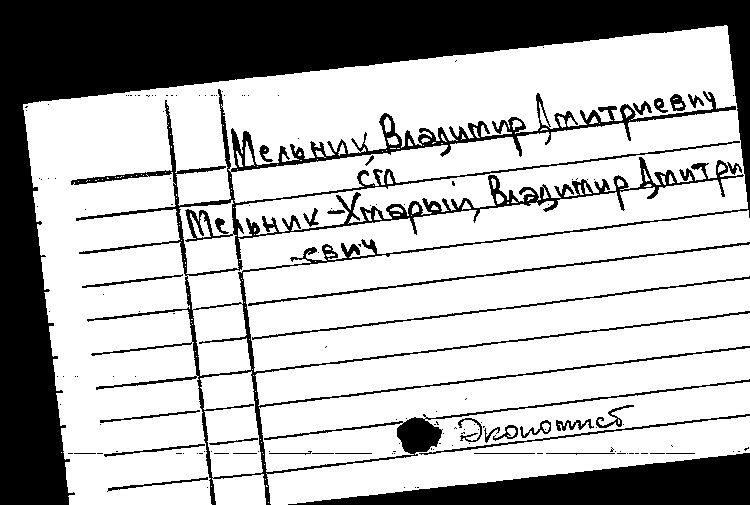 Мельник, Владимир Дмитриевич
см
Мельник-Хмарый, Владимир Дмитри
-евич.
Экономист